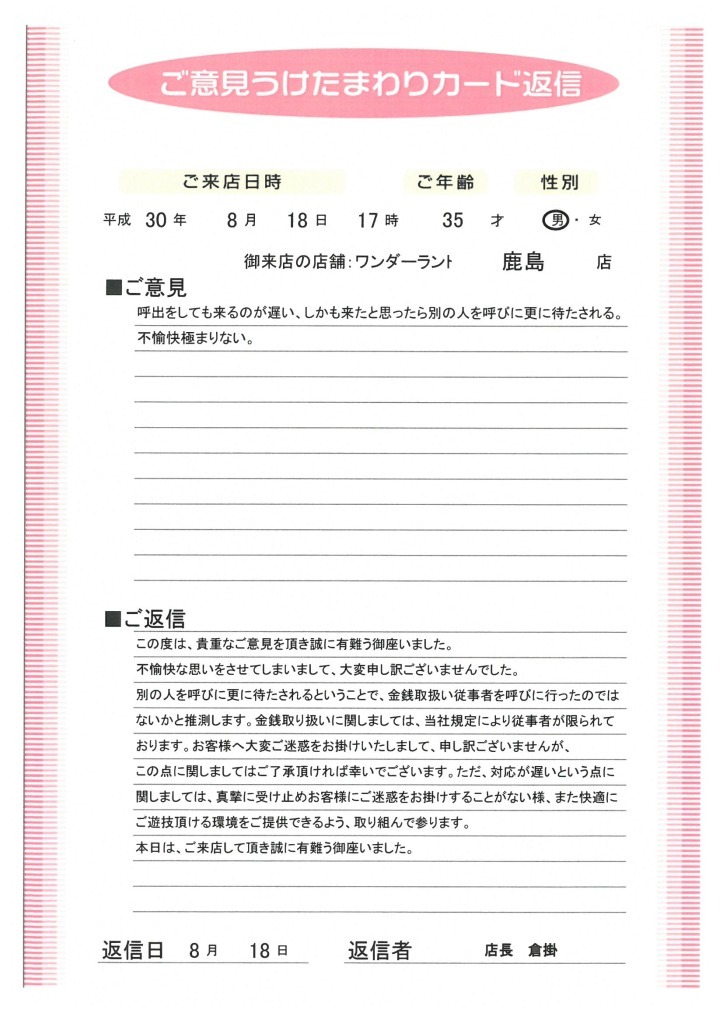 ご意見うけたまわりカード返信
ご来店日時 ご年齢 性別
平成 30 年 8 月 18 日 17 時 35 才 男・女
御来店の店舗：ワンダーラント 鹿島 店
■ご意見
呼出をしても来るのが遅い、しかも来たと思ったら別の人を呼びに更に待たされる。
不愉快極まりない。
■ご返信
この度は、貴重なご意見を頂き誠に有難う御座いました。
不愉快な思いをさせてしまいまして、大変申し訳ございませんでした。
別の人を呼びに更に待たされるということで、金銭取扱い従事者を呼びに行ったのでは
ないかと推測します。金銭取り扱いに関しましては、当社規定により従事者が限られて
おります。お客様へ大変ご迷惑をお掛けいたしまして、申し訳ございませんが、
この点に関しましてはご了承頂ければ幸いでございます。ただ、対応が遅いという点に
関しましては、真摯に受け止めお客様にご迷惑をお掛けすることがない様、また快適に
ご遊技頂ける環境をご提供できるよう、取り組んで参ります。
本日は、ご来店して頂き誠に有難う御座いました。
返信日 8 月 18 日 返信者 店長 倉掛